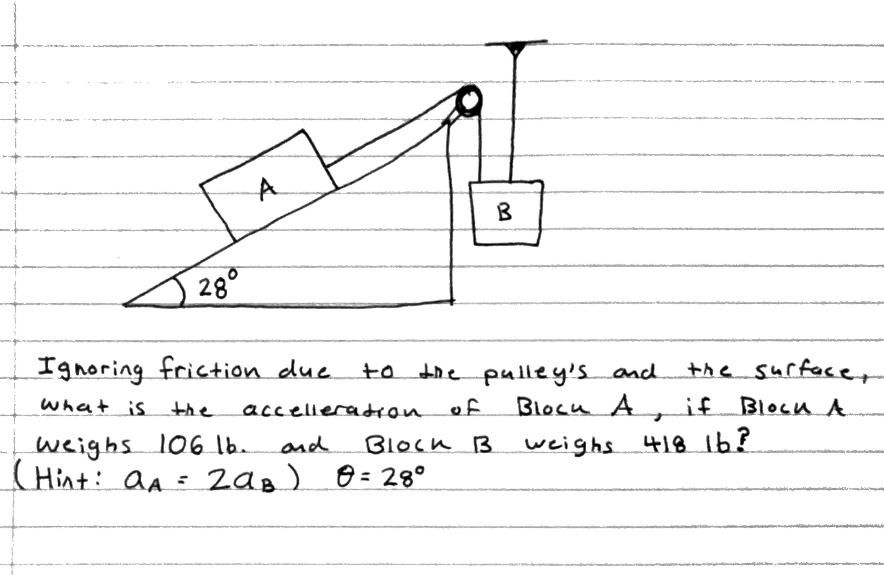 A
B
28°
Ignoring friction due to the pulley's and the surface,
what is the accelleration of Block A, if Block A
weighs 106 lb. and Block B weighs 418 lb?
(Hint: aA = 2aB) θ = 28°